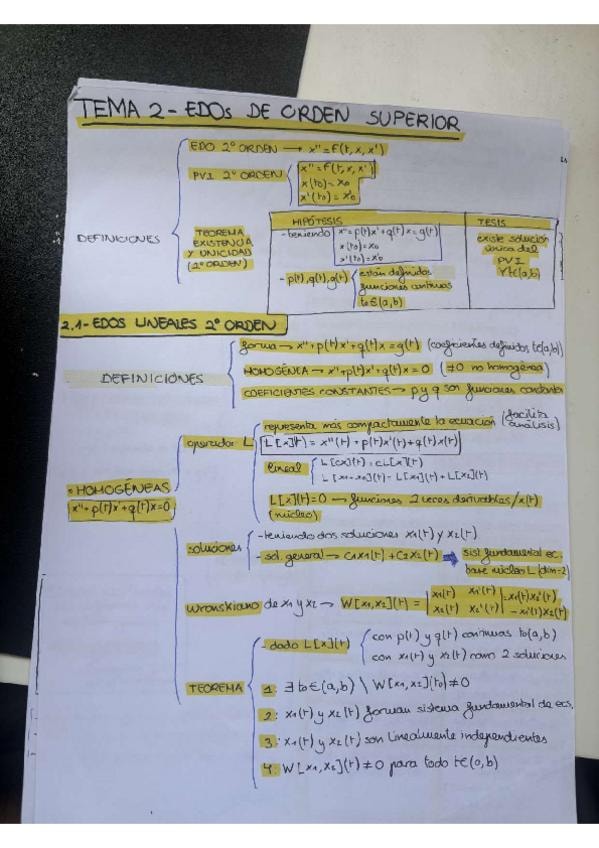 TEMA 2 - EDOs DE ORDEN SUPERIOR
DEFINICIONES
EDO 2º ORDEN → x''=F(t,x,x')
PVI 2º ORDEN
x''=F(t,x,x')
x(t0)=x0
x'(t0)=x'0
TEOREMA EXISTENCIA Y UNICIDAD (2º ORDEN)
HIPÓTESIS
- teniendo x''+p(t)x'+q(t)x=g(t)
x(t0)=x0
x'(t0)=x'0
- p(t),q(t),g(t)
están definidos
funciones continuas
t0∈(a,b)
TESIS
existe solución
única del
PVI
∀t∈(a,b)
2.1- EDOS LINEALES 2º ORDEN
DEFINICIONES
forma → x''+p(t)x'+q(t)x=g(t) (coeficientes definidos t∈(a,b))
HOMOGÉNEA → x''+p(t)x'+q(t)x=0 (≠0 no homogénea)
COEFICIENTES CONSTANTES → p y q son funciones constantes
• HOMOGÉNEAS
x''+p(t)x'+q(t)x=0
operador L
representa más compactamente la ecuación (facilita análisis)
L[x](t) = x''(t)+p(t)x'(t)+q(t)x(t)
lineal
L[cx](t)=cL[x](t)
L[x1+x2](t)=L[x1](t)+L[x2](t)
L[x](t)=0 → funciones 2 veces derivables/x(t)
(núcleo)
soluciones
- teniendo dos soluciones x1(t) y x2(t)
- sol. general → C1x1(t)+C2x2(t) → sist. fundamental ec.
base núcleo L (dim=2)
Wronskiano de x1 y x2 → W[x1,x2](t) = | x1(t) x1'(t) | = x1(t)x2'(t)
| x2(t) x2'(t) | - x1'(t)x2(t)
TEOREMA
- dado L[x](t)
con p(t) y q(t) continuas t∈(a,b)
con x1(t) y x2(t) como 2 soluciones
1: ∃ t0∈(a,b) \ W[x1,x2](t0)≠0
2: x1(t) y x2(t) forman sistema fundamental de ecs.
3: x1(t) y x2(t) son linealmente independientes
4: W[x1,x2](t)≠0 para todo t∈(a,b)